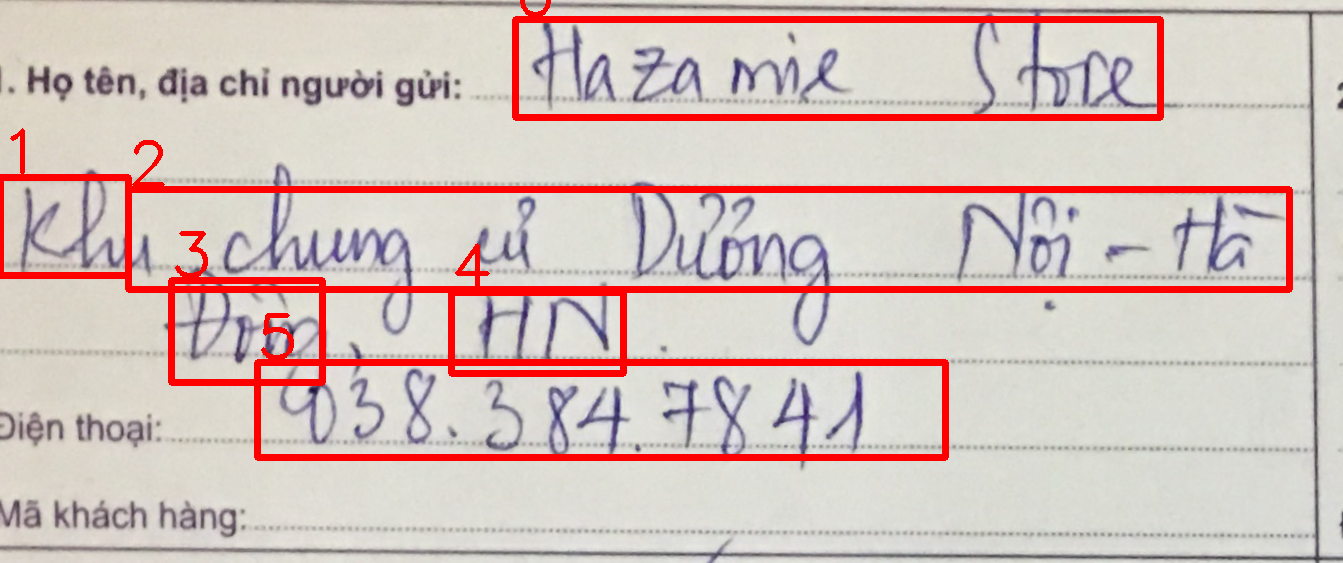 0
1. Họ tên, địa chỉ người gửi: Hazamie Store
1 2
Khu chung cư Dương Nội - Hà
3 4
Đông, HN.
5
Điện thoại: 038.384.7841
Mã khách hàng: